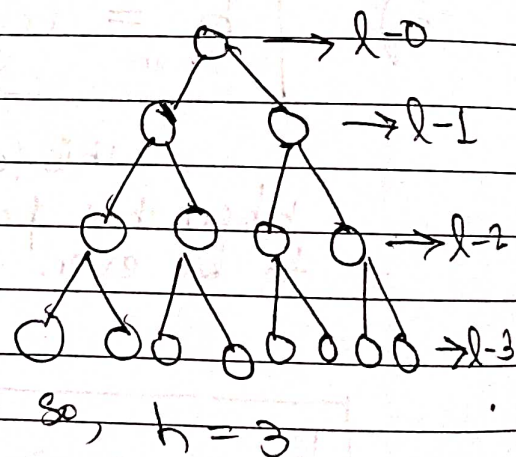 → l-0
→ l-1
→ l-2
→ l-3
So, h = 3